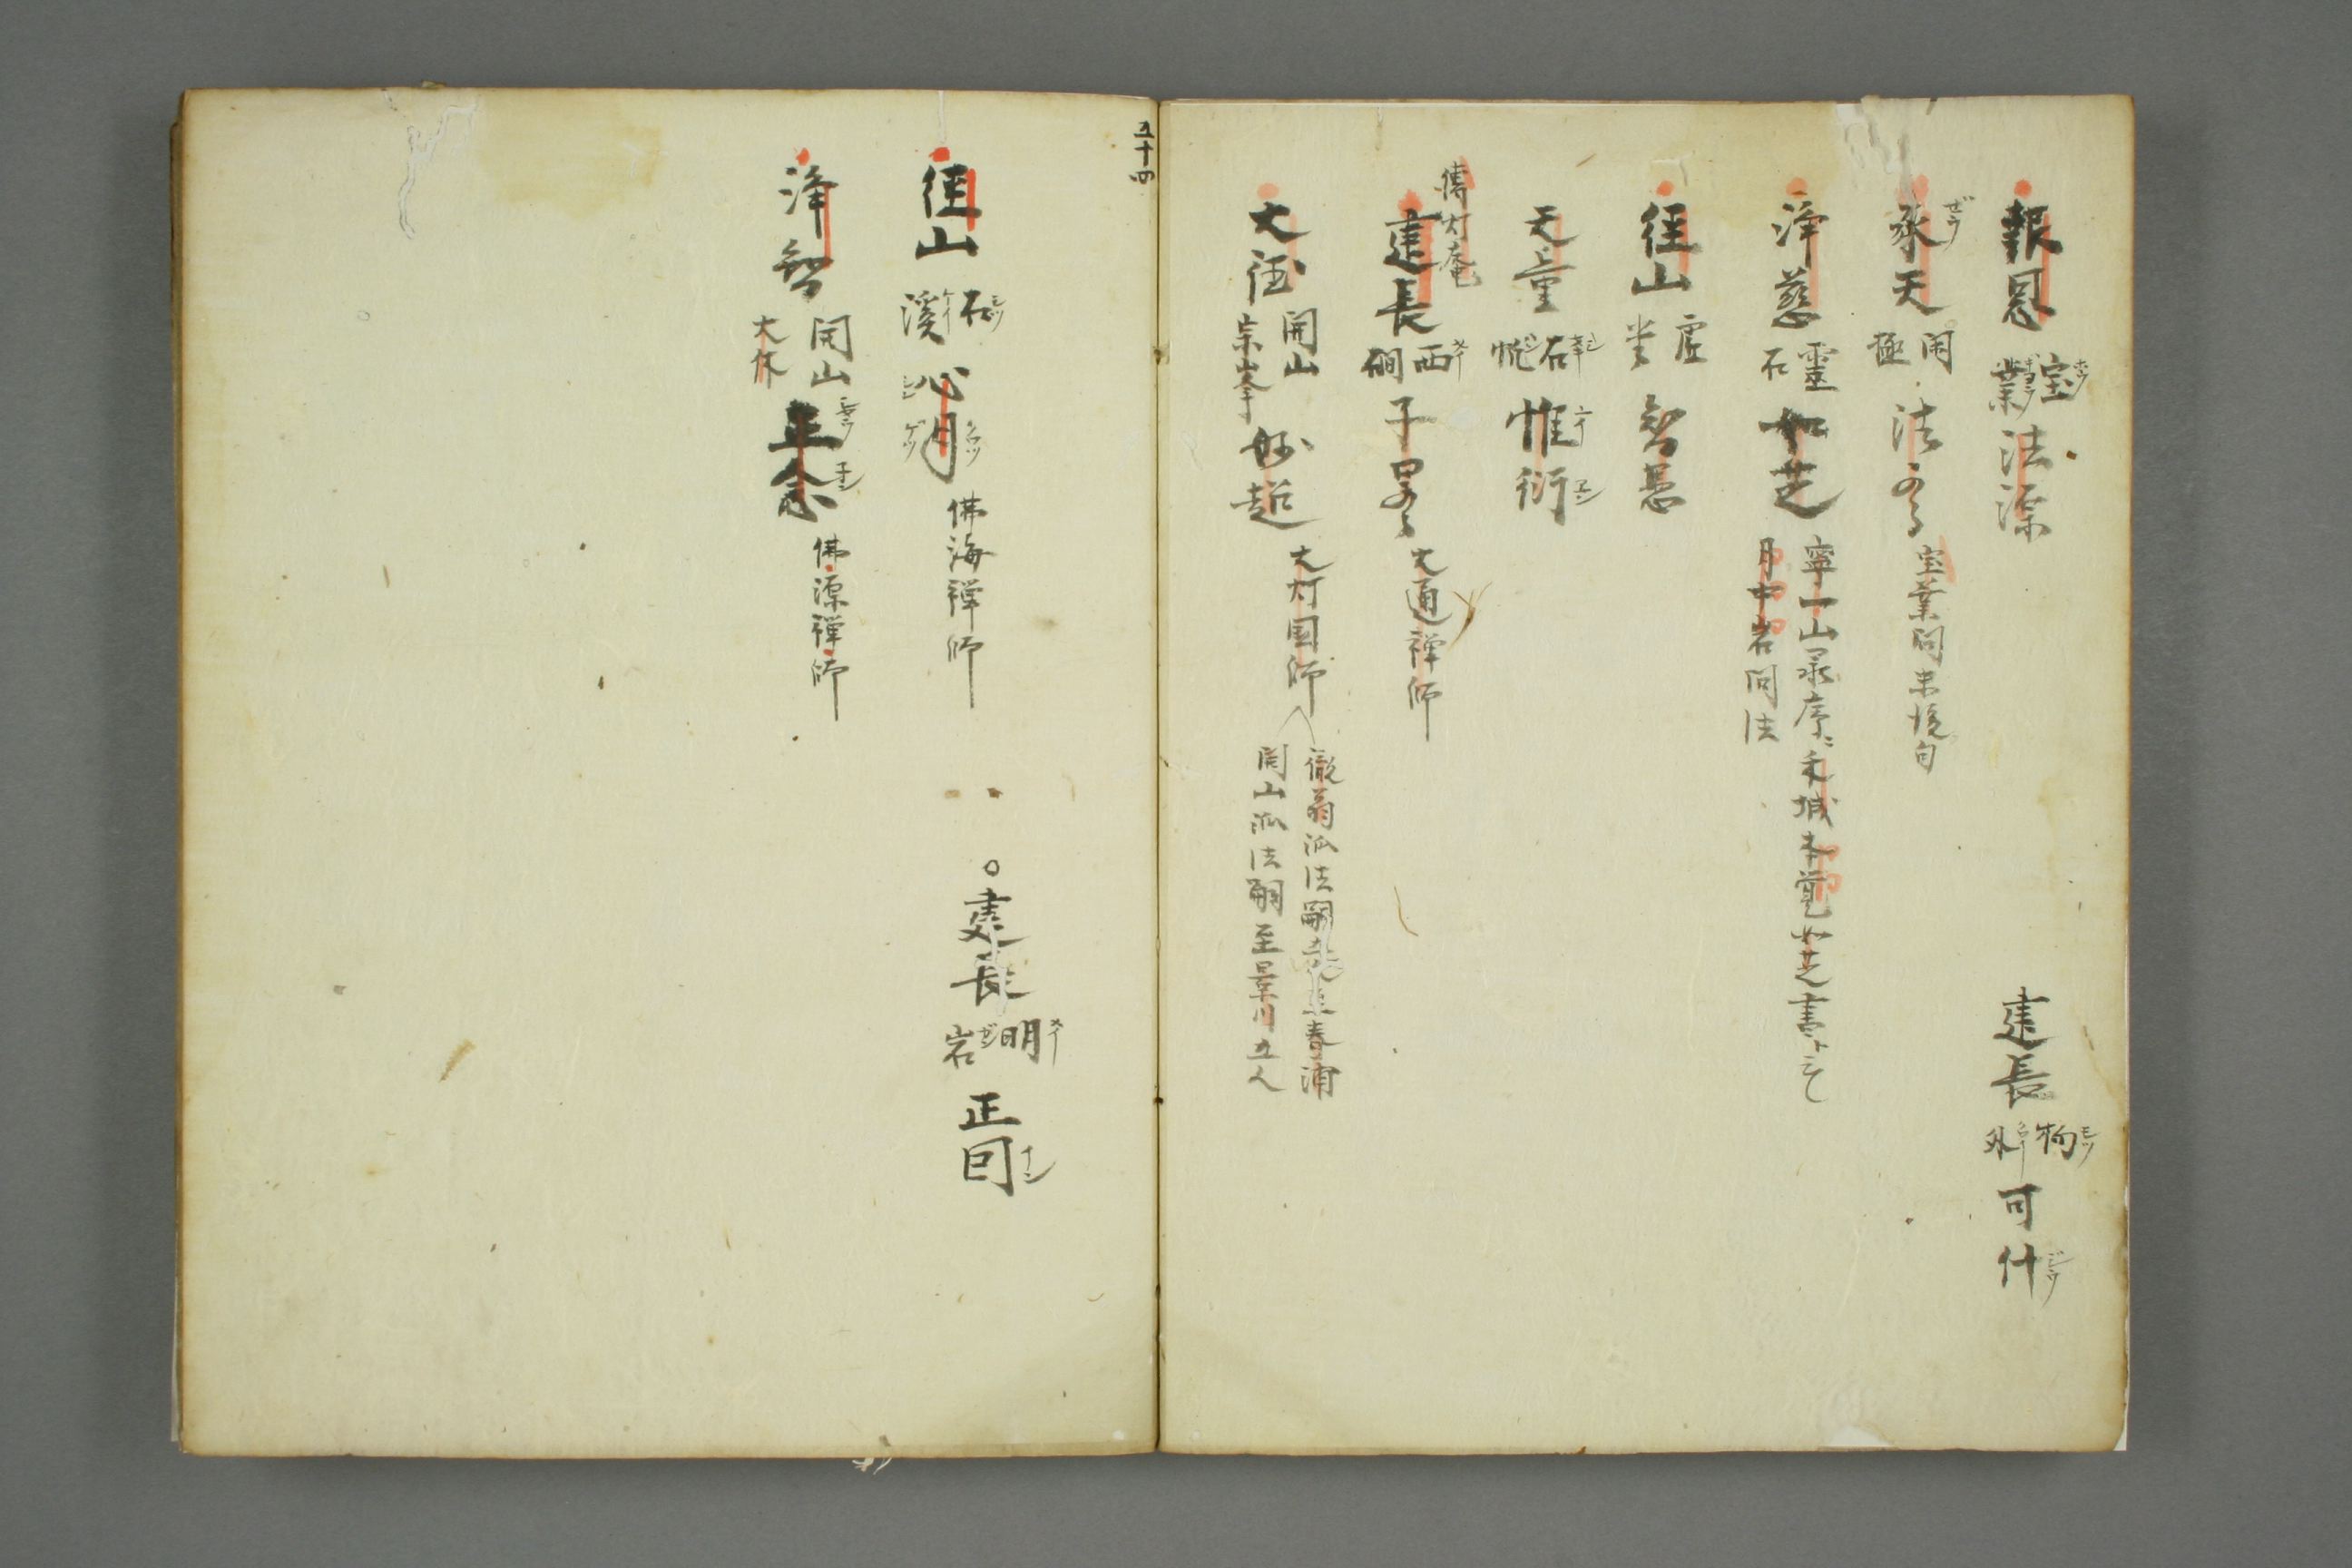 報恩 宝葉 法源 建長 物外 可什
承天 閑極 法雲 宝葉問末後句
浄慈 靈石 如芝 寧一山录序ニ禾城本覚如芝書ト云
月中岩問法
径山 虚堂 智愚
天童 石帆 惟衍
傳灯庵
建長 西磵 子曇 大通禅師
大德 開山 宗峯 妙超 大灯国師
徹翁派法嗣 至春浦
関山派法嗣至景川五人
五十四
径山 石溪 心月 佛海禅師 建長 明岩 正因
浄智 開山 大休 正念 佛源禅師